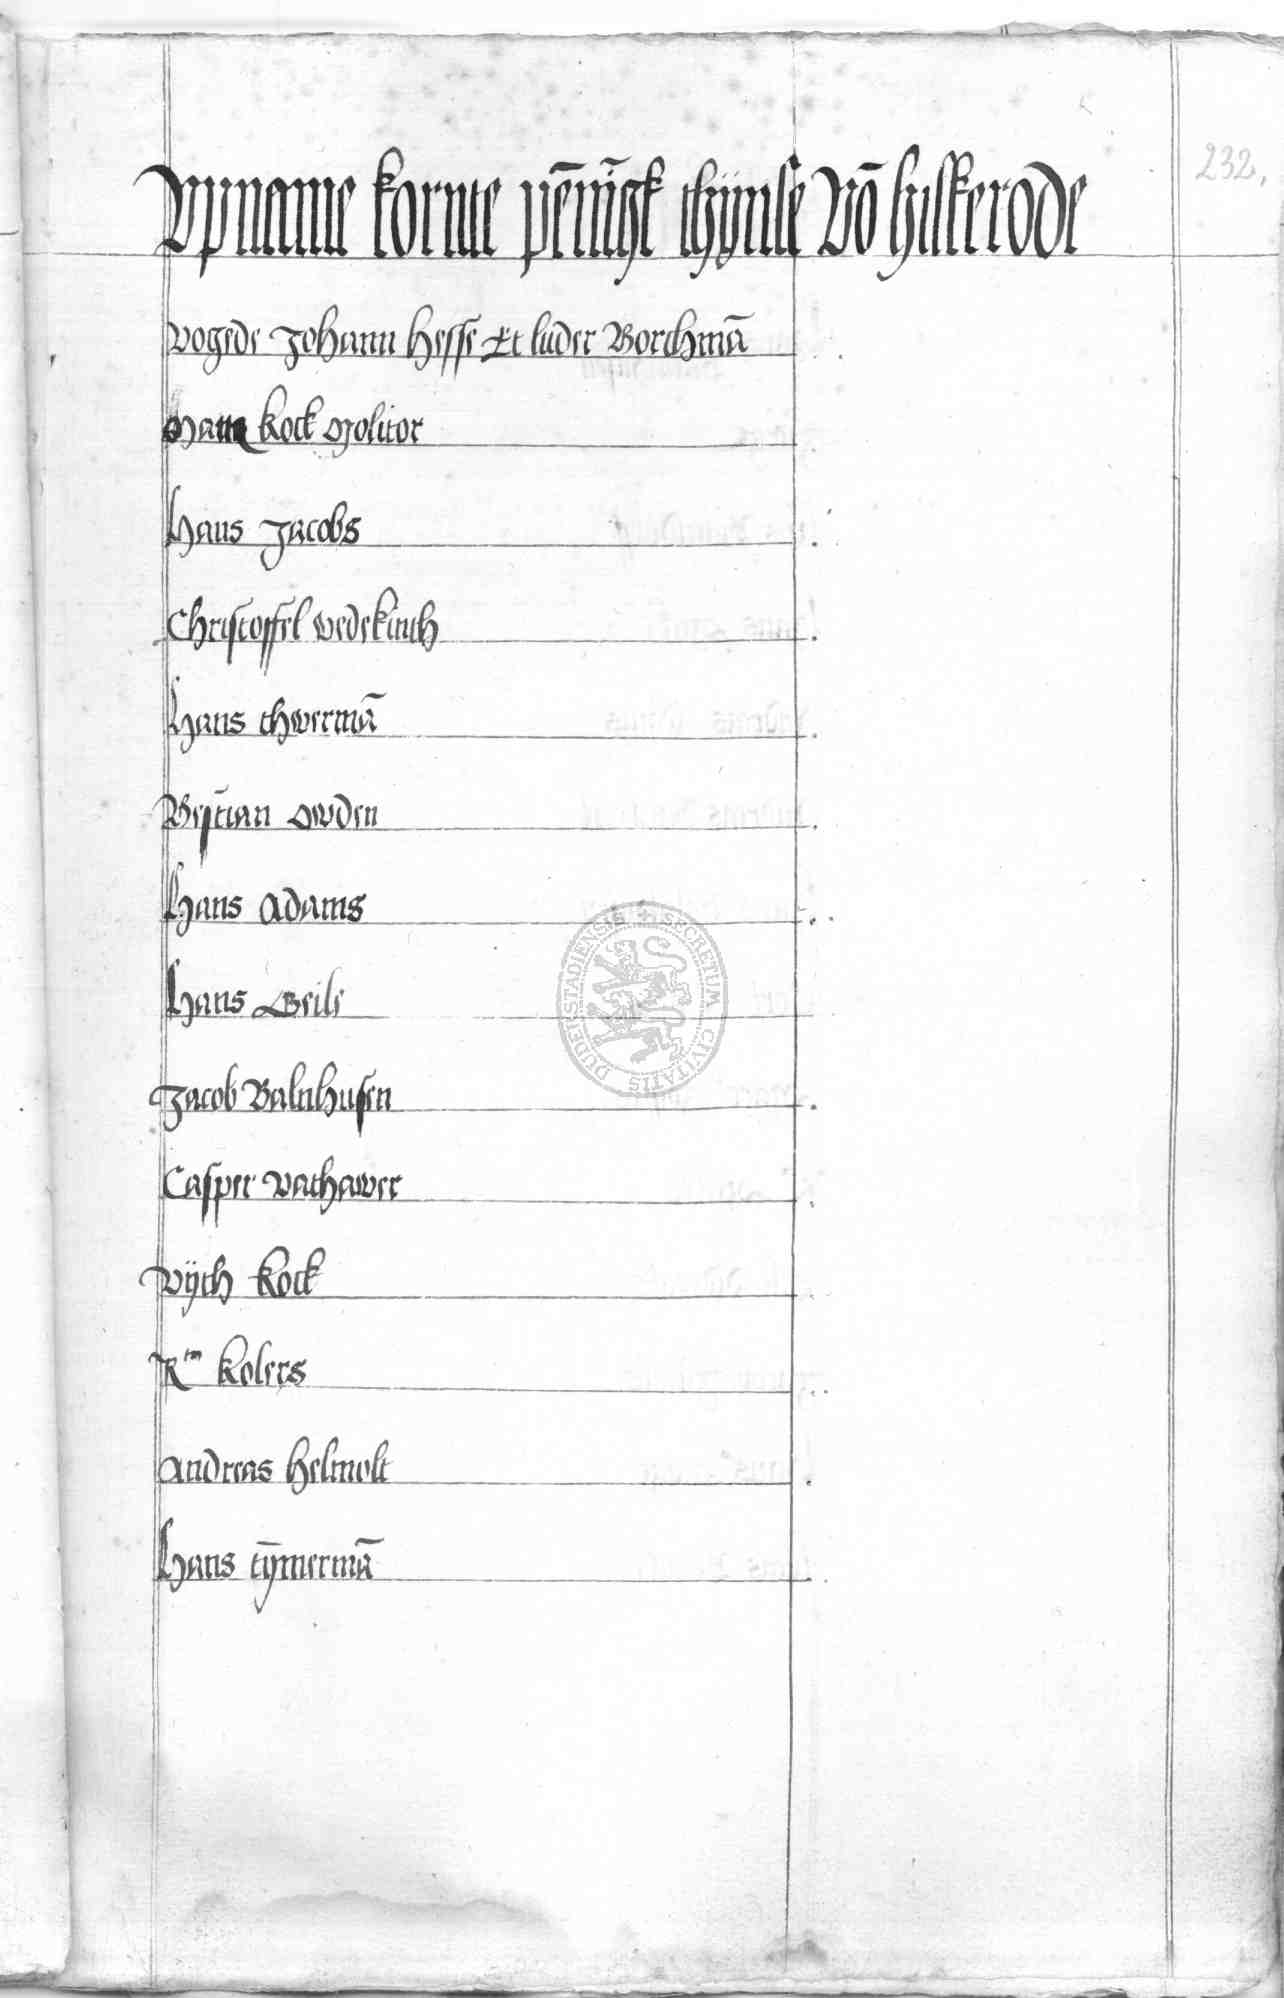 232.
Vpname kornte pe̅ni̅gk thÿnse vo̅ hilkerode
Vogede Johann Hesse Et luder Borchma̅
kock Molitor
Hans Jacobs
Christoffel wedekinth
Hans thwerma̅
Bestian owden
Hans Adams
Hans Weile
Jacob Balnhusen
Casper Vathawer
Vÿth kock
kolers
Andreas Helmolt
Hans ty̅merma̅
SECRETUM CIVITATIS DUDERSTADIENSIS